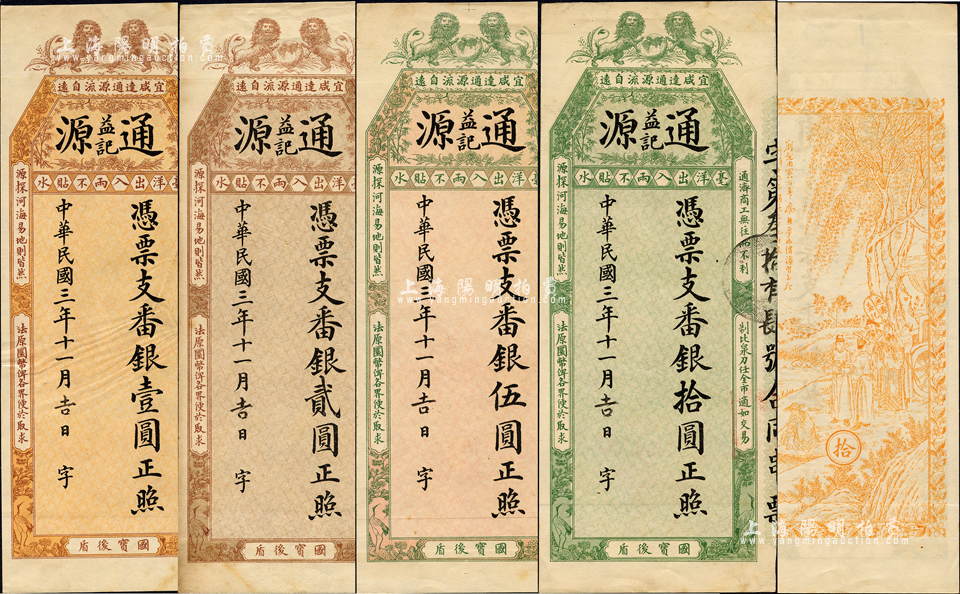 上海陽明拍賣
www.yangmingauction.com
宜咸達通源流自遠
通益記源
臺洋出入兩不貼水
憑票支番銀壹圓正照
中華民國三年十一月吉日 字
源探河海易地則皆然
法原圜幣俾各界便於取求
國寶後盾
宜咸達通源流自遠
通益記源
臺洋出入兩不貼水
憑票支番銀貳圓正照
中華民國三年十一月吉日 字
源探河海易地則皆然
法原圜幣俾各界便於取求
國寶後盾
宜咸達通源流自遠
通益記源
臺洋出入兩不貼水
憑票支番銀伍圓正照
中華民國三年十一月吉日 字
源探河海易地則皆然
法原圜幣俾各界便於取求
國寶後盾
上海陽明拍賣
www.yangmingauction.com
宜咸達通源流自遠
通益記源
臺洋出入兩不貼水
通濟商工無往而不利
制比泉刀任全市適如交易
憑票支番銀拾圓正照
中華民國三年十一月吉日 字
源探河海易地則皆然
法原圜幣俾各界便於取求
國寶後盾
拾
上海陽明拍賣
www.yangmingauction.com